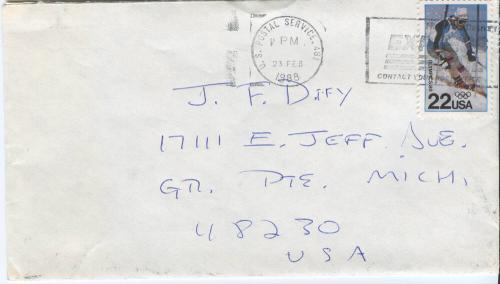 U.S. POSTAL SERVICE, 481
PM
23 FEB
1988
CONTACT YOUR
22 USA
J. F. Duffy
17111 E. JEFF. AVE.
GR. PTE. MICH.
48230
USA